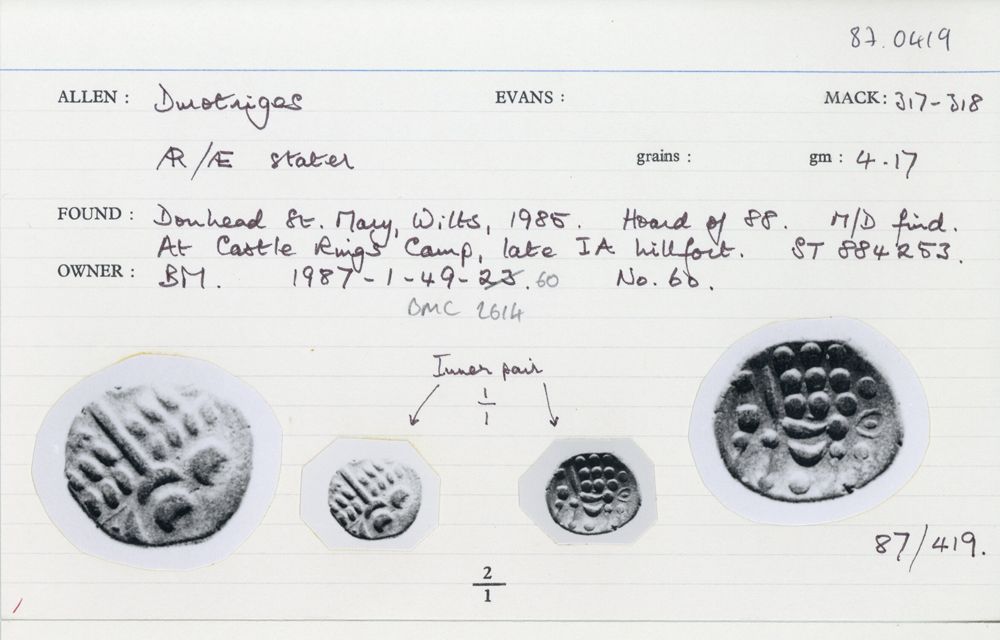 87.0419
ALLEN : Durotriges EVANS : MACK: 317-318
ÆR/Æ stater grains : gm : 4.17
FOUND : Donhead St. Mary, Wilts, 1985. Hoard of 88. M/D find.
At Castle Rings Camp, late IA hillfort. ST 884253.
OWNER : BM. 1987-1-49-25. 60 No. 60.
BMC 2614
Inner pair
1
1
87/419.
2
1